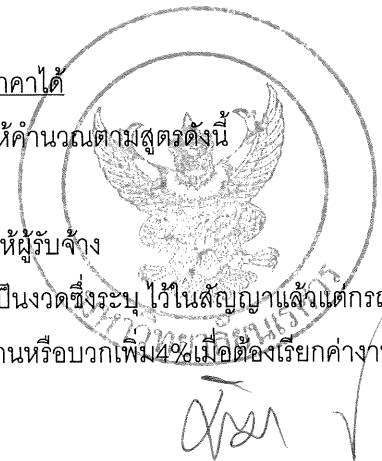 าคาได้
ห้คำนวณตามสูตรดังนี้
ห้ผู้รับจ้าง
ป็นงวดซึ่งระบุ ไว้ในสัญญาแล้วแต่กรณ
านหรือบวกเพิ่ม4%เมื่อต้องเรียกค่างาน
มหาวิทยาลัยนเรศวร